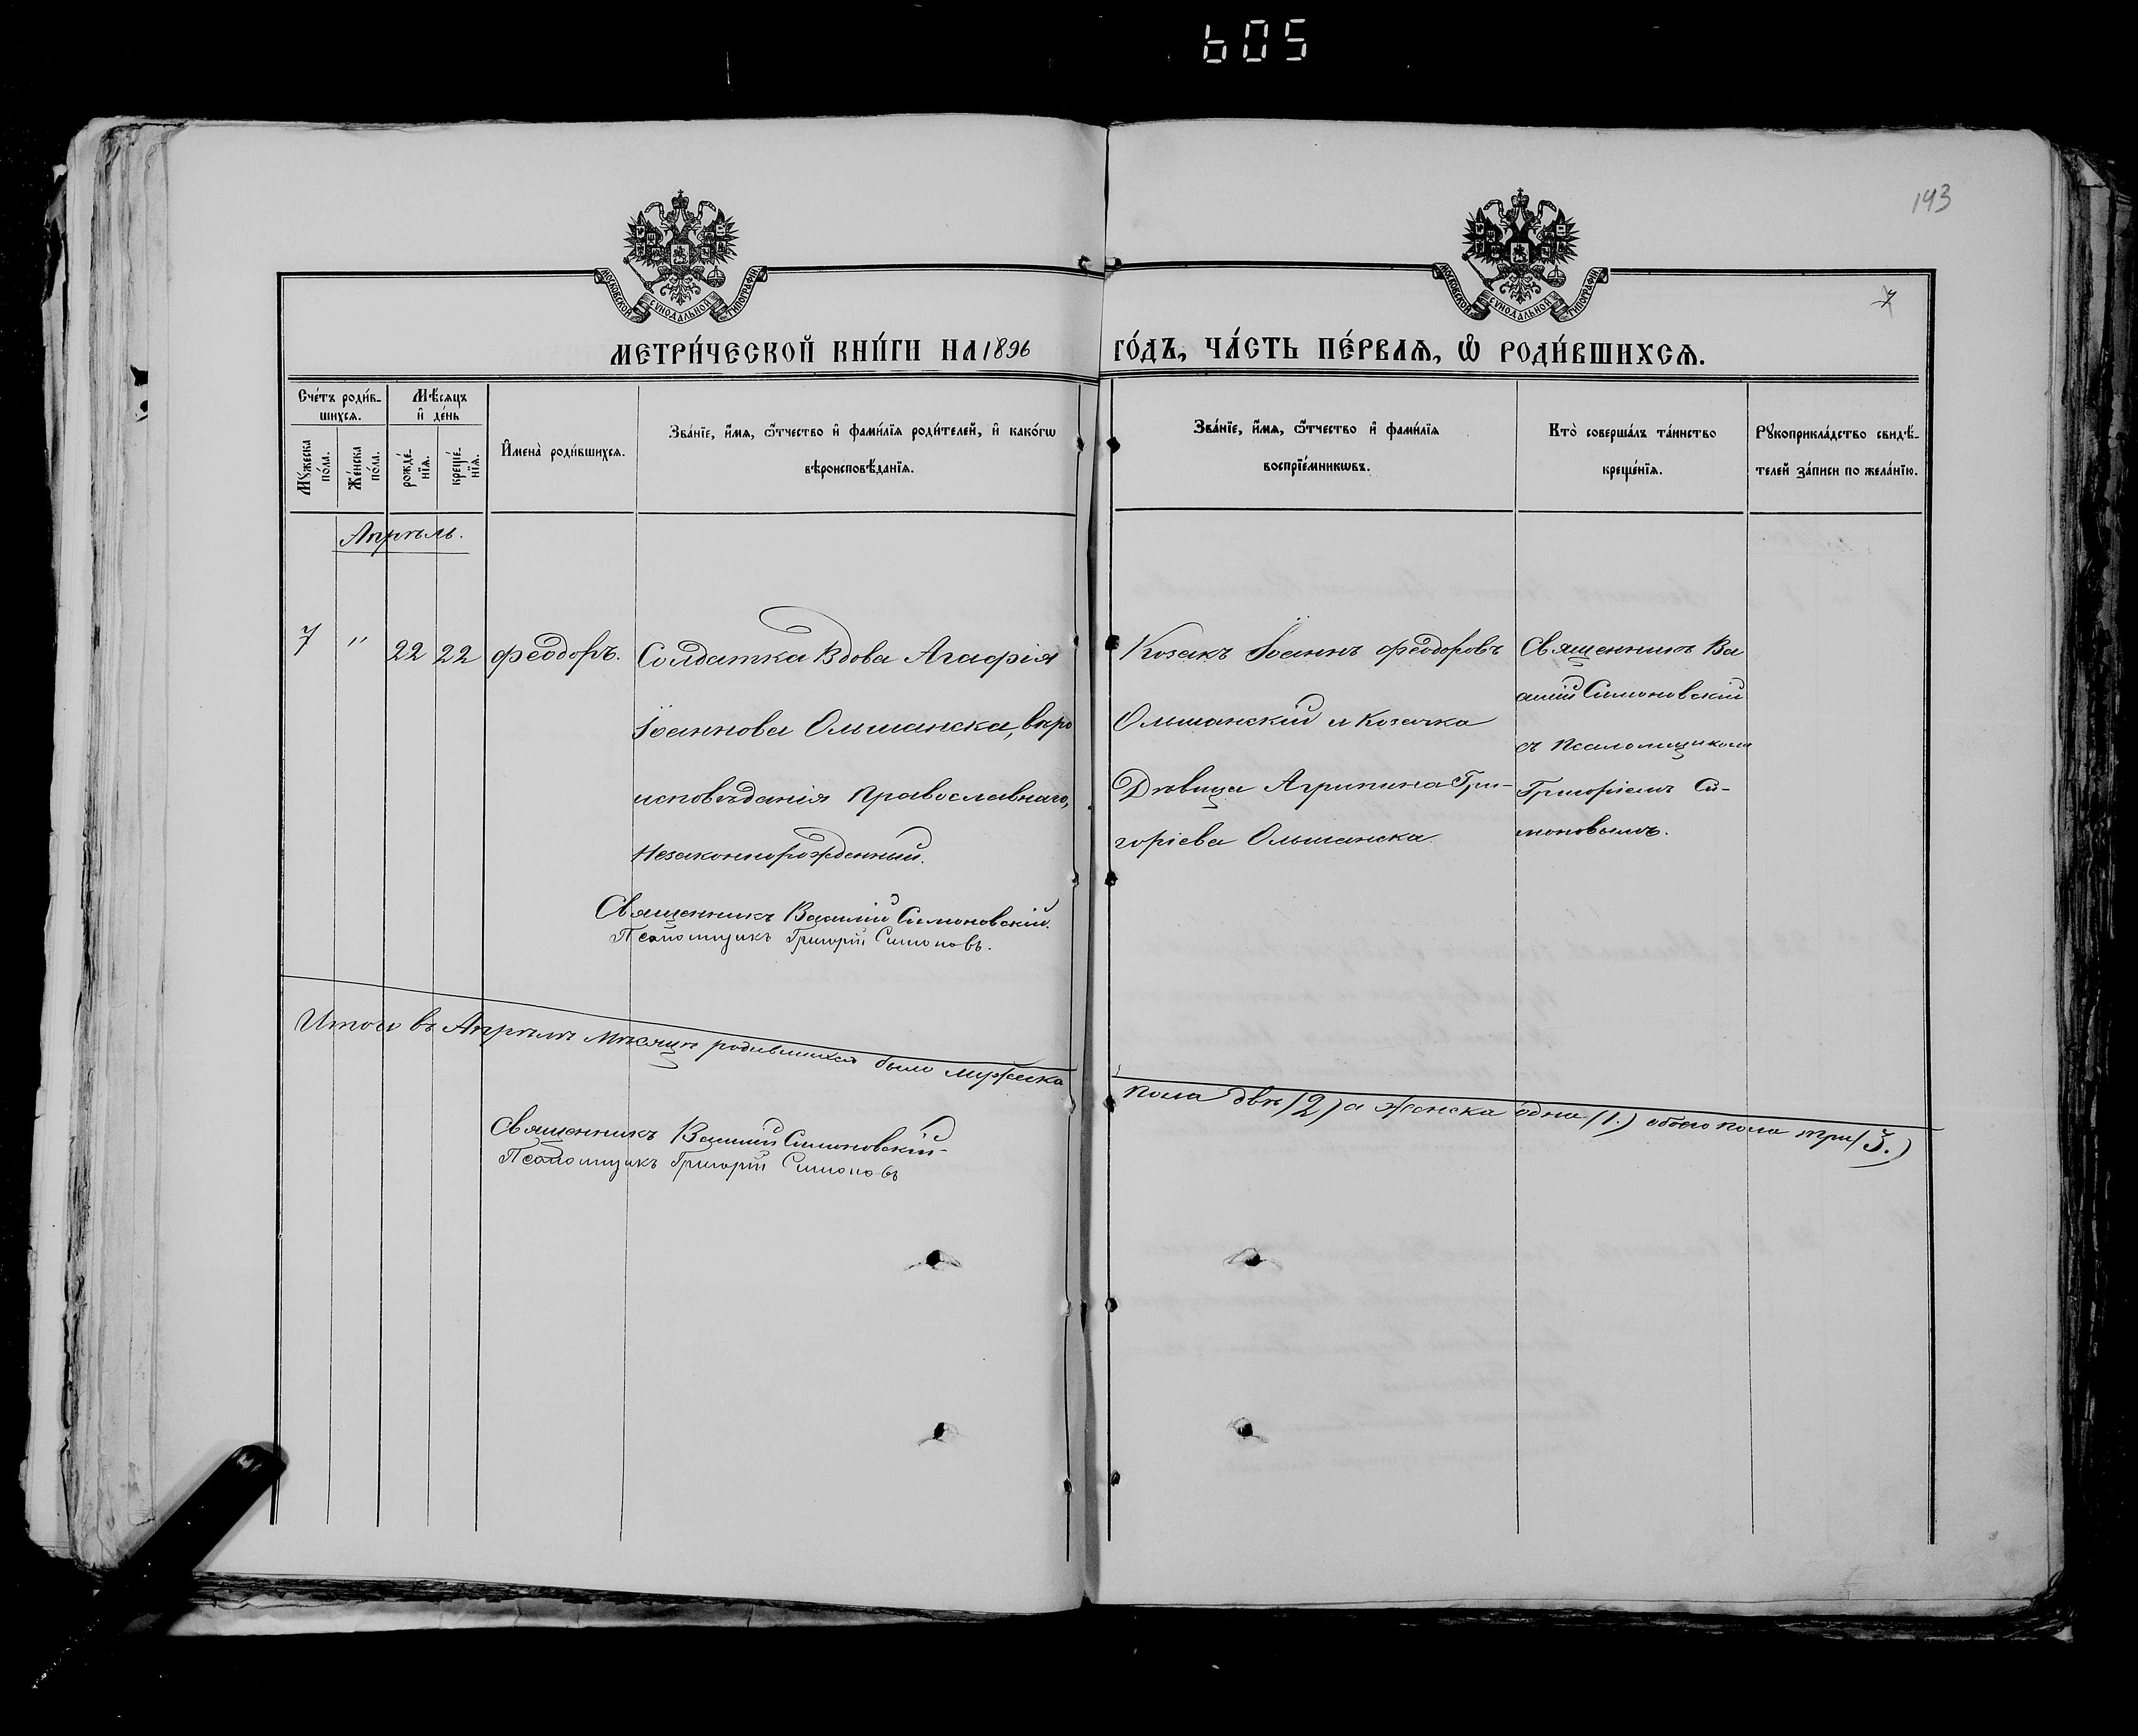 605
143
7
МОСКОВСКОЙ СѴНОДАЛЬНОЙ ТИПОГРАФІИ
МОСКОВСКОЙ СѴНОДАЛЬНОЙ ТИПОГРАФІИ
МЕТРИ́ЧЕСКОЙ КНИ́ГИ НА 1896 ГО́ДЪ, ЧА́СТЬ ПЕ́РВАѦ, Ѡ҆ РОДИ́ВШИХСѦ.
Сче́тъ роди́в-
шихсѧ.
Мꙋ́жеска по́ла.
Же́нска по́ла.
Мѣ́сѧцъ и҆ де́нь
рожде́-
нїѧ.
креще́-
нїѧ.
И҆мена̀ роди́вшихсѧ.
Зва́нїе, и҆́мѧ, ѻ҆́тчество и҆ фами́лїѧ роди́телей, и҆ како́гѡ
вѣроисповѣ́данїѧ.
Зва́нїе, и҆́мѧ, ѻ҆́тчество и҆ фами́лїѧ
воспрїе́мникѡвъ.
Кто̀ соверша́лъ та́инство
креще́нїѧ.
Рꙋкоприкла́дство свидѣ́-
телей за́писи по жела́нїю.
Апрѣль.
7 " 22 22 Ѳеодоръ.
Солдатка вдова Агафія
Іоаннова Ольшанска, вѣро
исповѣданія православнаго,
Незаконнорожденный.
Козакъ Іоаннъ Ѳеодоровъ
Ольшанскій и козачка
Дѣвица Агрипина Гри-
горіева Ольшанска
Священникъ Ва
силій Симоновскій
съ псаломщикомъ
Григоріемъ Си-
моновымъ.
Священникъ Василій Симоновскій.
Псаломщикъ Григорій Симоновъ.
Итого въ Апрѣлѣ мѣсяцѣ родившихся было мужеска пола двѣ (2) а женска одна (1.) обоего пола три (3.)
Священникъ Василій Симоновскій
Псаломщикъ Григорій Симоновъ